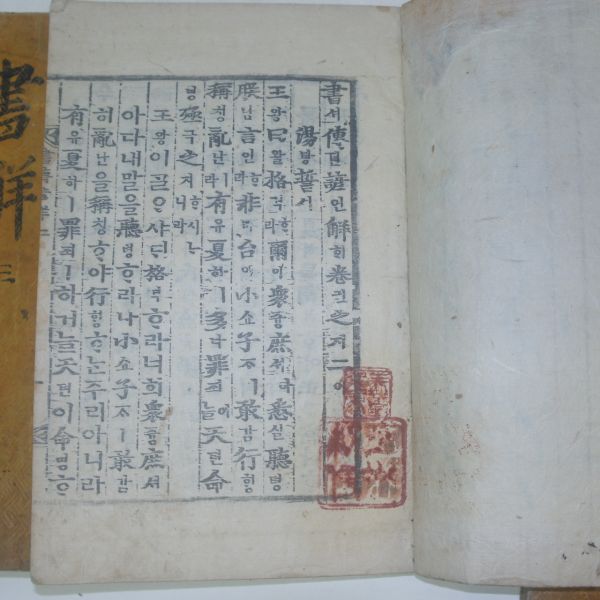 書셔傳뎐諺언解ᄒᆡ卷권之지二이
湯탕誓셔
王왕曰왈格격ᄒᆞ라爾이衆즁庶셔아悉실聽텽
朕딤言언ᄒᆞ라非비台이小쇼子ᄌᆞㅣ敢감行ᄒᆡᆼ
稱칭亂난이라有유夏하ㅣ多다罪죄ᄒᆞᄂᆞᆯ天텬命
명殛극之지ᄒᆞ시ᄂᆞ니라
王왕이ᄀᆞᆯᄋᆞ샤ᄃᆡ格격ᄒᆞ라너희衆즁庶셔
아다내말을聽텽ᄒᆞ라나小쇼子ᄌᆞㅣ敢감
히亂난을稱칭ᄒᆞ야行ᄒᆡᆼᄒᆞ논주리아니라
有유夏하ㅣ罪죄ㅣ하거늘天텬이命명ᄒᆞ
書解